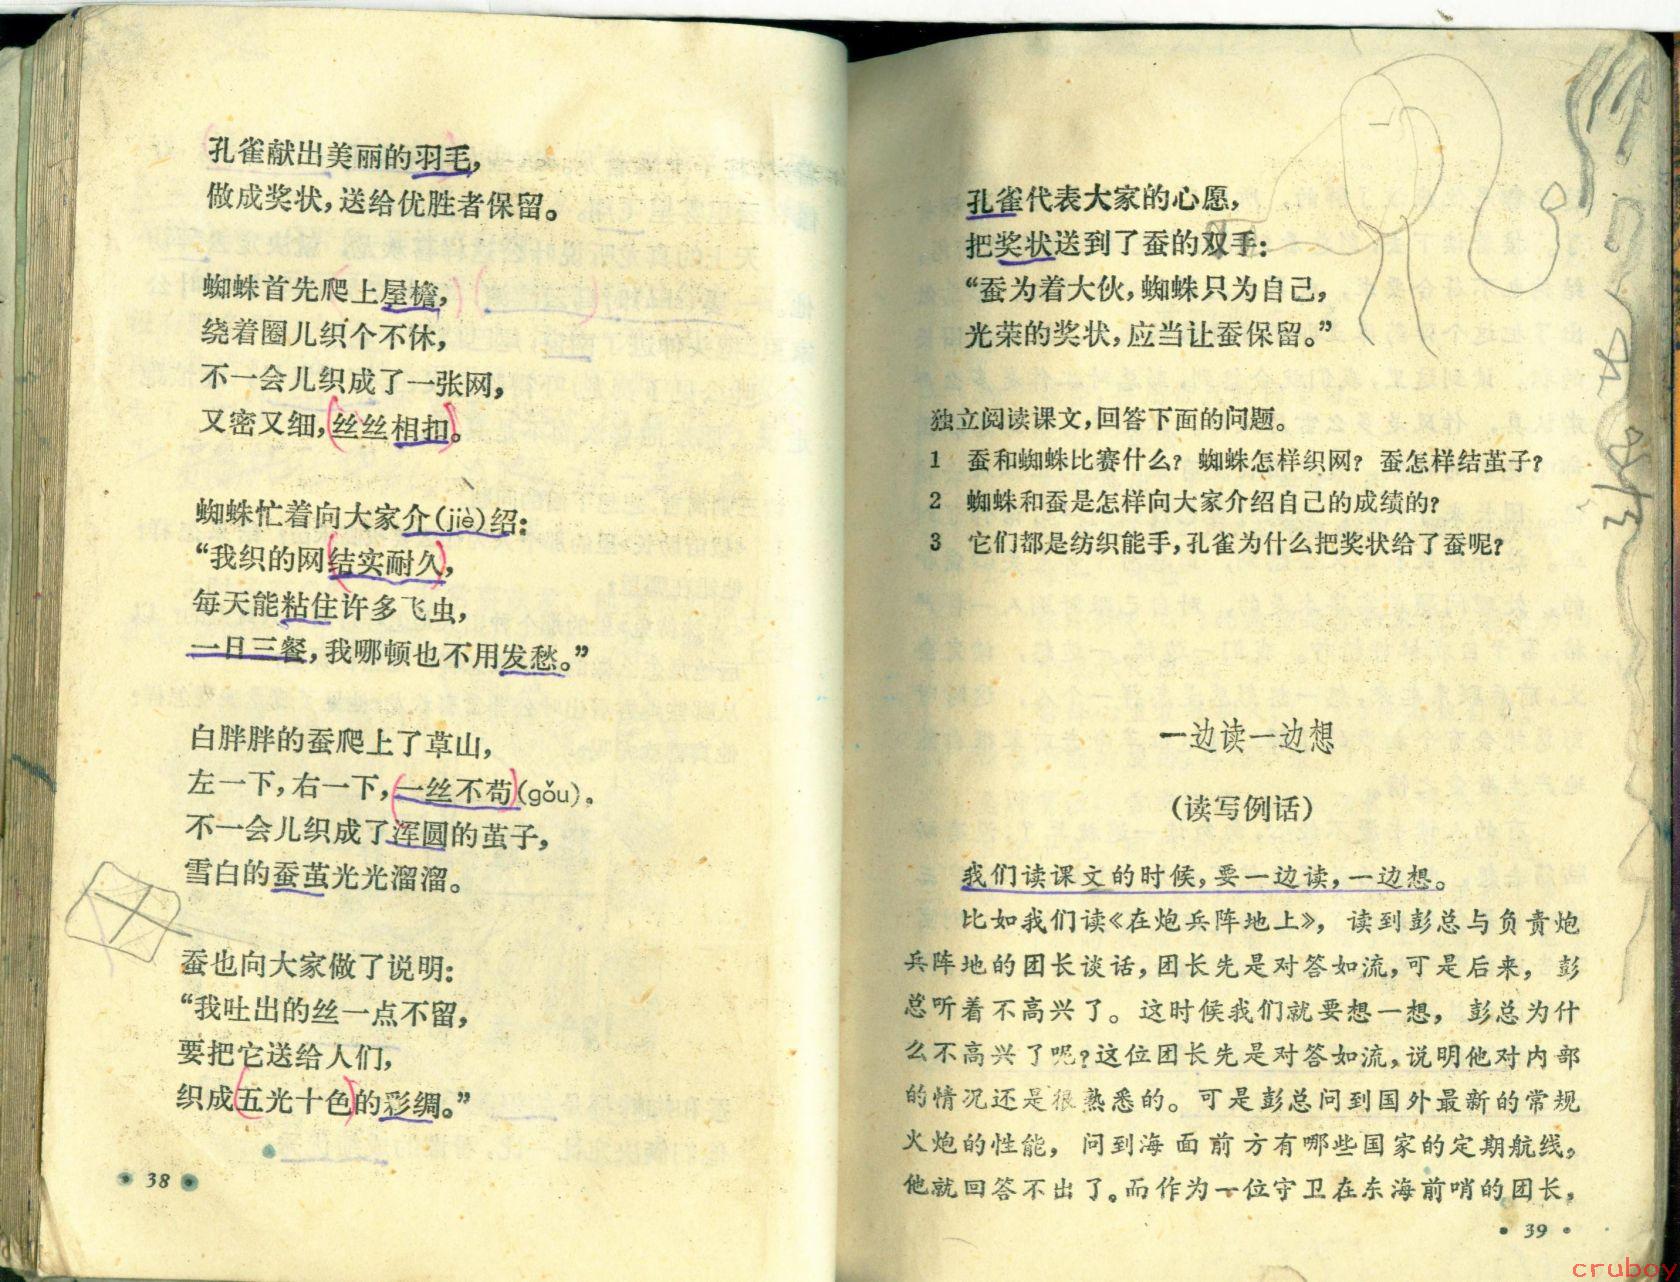 孔雀献出美丽的羽毛，
做成奖状，送给优胜者保留。
蜘蛛首先爬上屋檐，
绕着圈儿织个不休，
不一会儿织成了一张网，
又密又细，丝丝相扣。
蜘蛛忙着向大家介(jiè)绍：
“我织的网结实耐久，
每天能粘住许多飞虫，
一日三餐，我哪顿也不用发愁。”
白胖胖的蚕爬上了草山，
左一下，右一下，一丝不苟(gǒu)。
不一会儿织成了浑圆的茧子，
雪白的蚕茧光光溜溜。
蚕也向大家做了说明：
“我吐出的丝一点不留，
要把它送给人们，
织成五光十色的彩绸。”
• 38 •
孔雀代表大家的心愿，
把奖状送到了蚕的双手：
“蚕为着大伙，蜘蛛只为自己，
光荣的奖状，应当让蚕保留。”
独立阅读课文，回答下面的问题。
1 蚕和蜘蛛比赛什么？蜘蛛怎样织网？蚕怎样结茧子？
2 蜘蛛和蚕是怎样向大家介绍自己的成绩的？
3 它们都是纺织能手，孔雀为什么把奖状给了蚕呢？
一边读一边想
（读写例话）
我们读课文的时候，要一边读，一边想。
比如我们读《在炮兵阵地上》，读到彭总与负责炮
兵阵地的团长谈话，团长先是对答如流，可是后来，彭
总听着不高兴了。这时候我们就要想一想，彭总为什
么不高兴了呢？这位团长先是对答如流，说明他对内部
的情况还是很熟悉的。可是彭总问到国外最新的常规
火炮的性能，问到海面前方有哪些国家的定期航线，
他就回答不出了。而作为一位守卫在东海前哨的团长，
• 39 •
cruboy